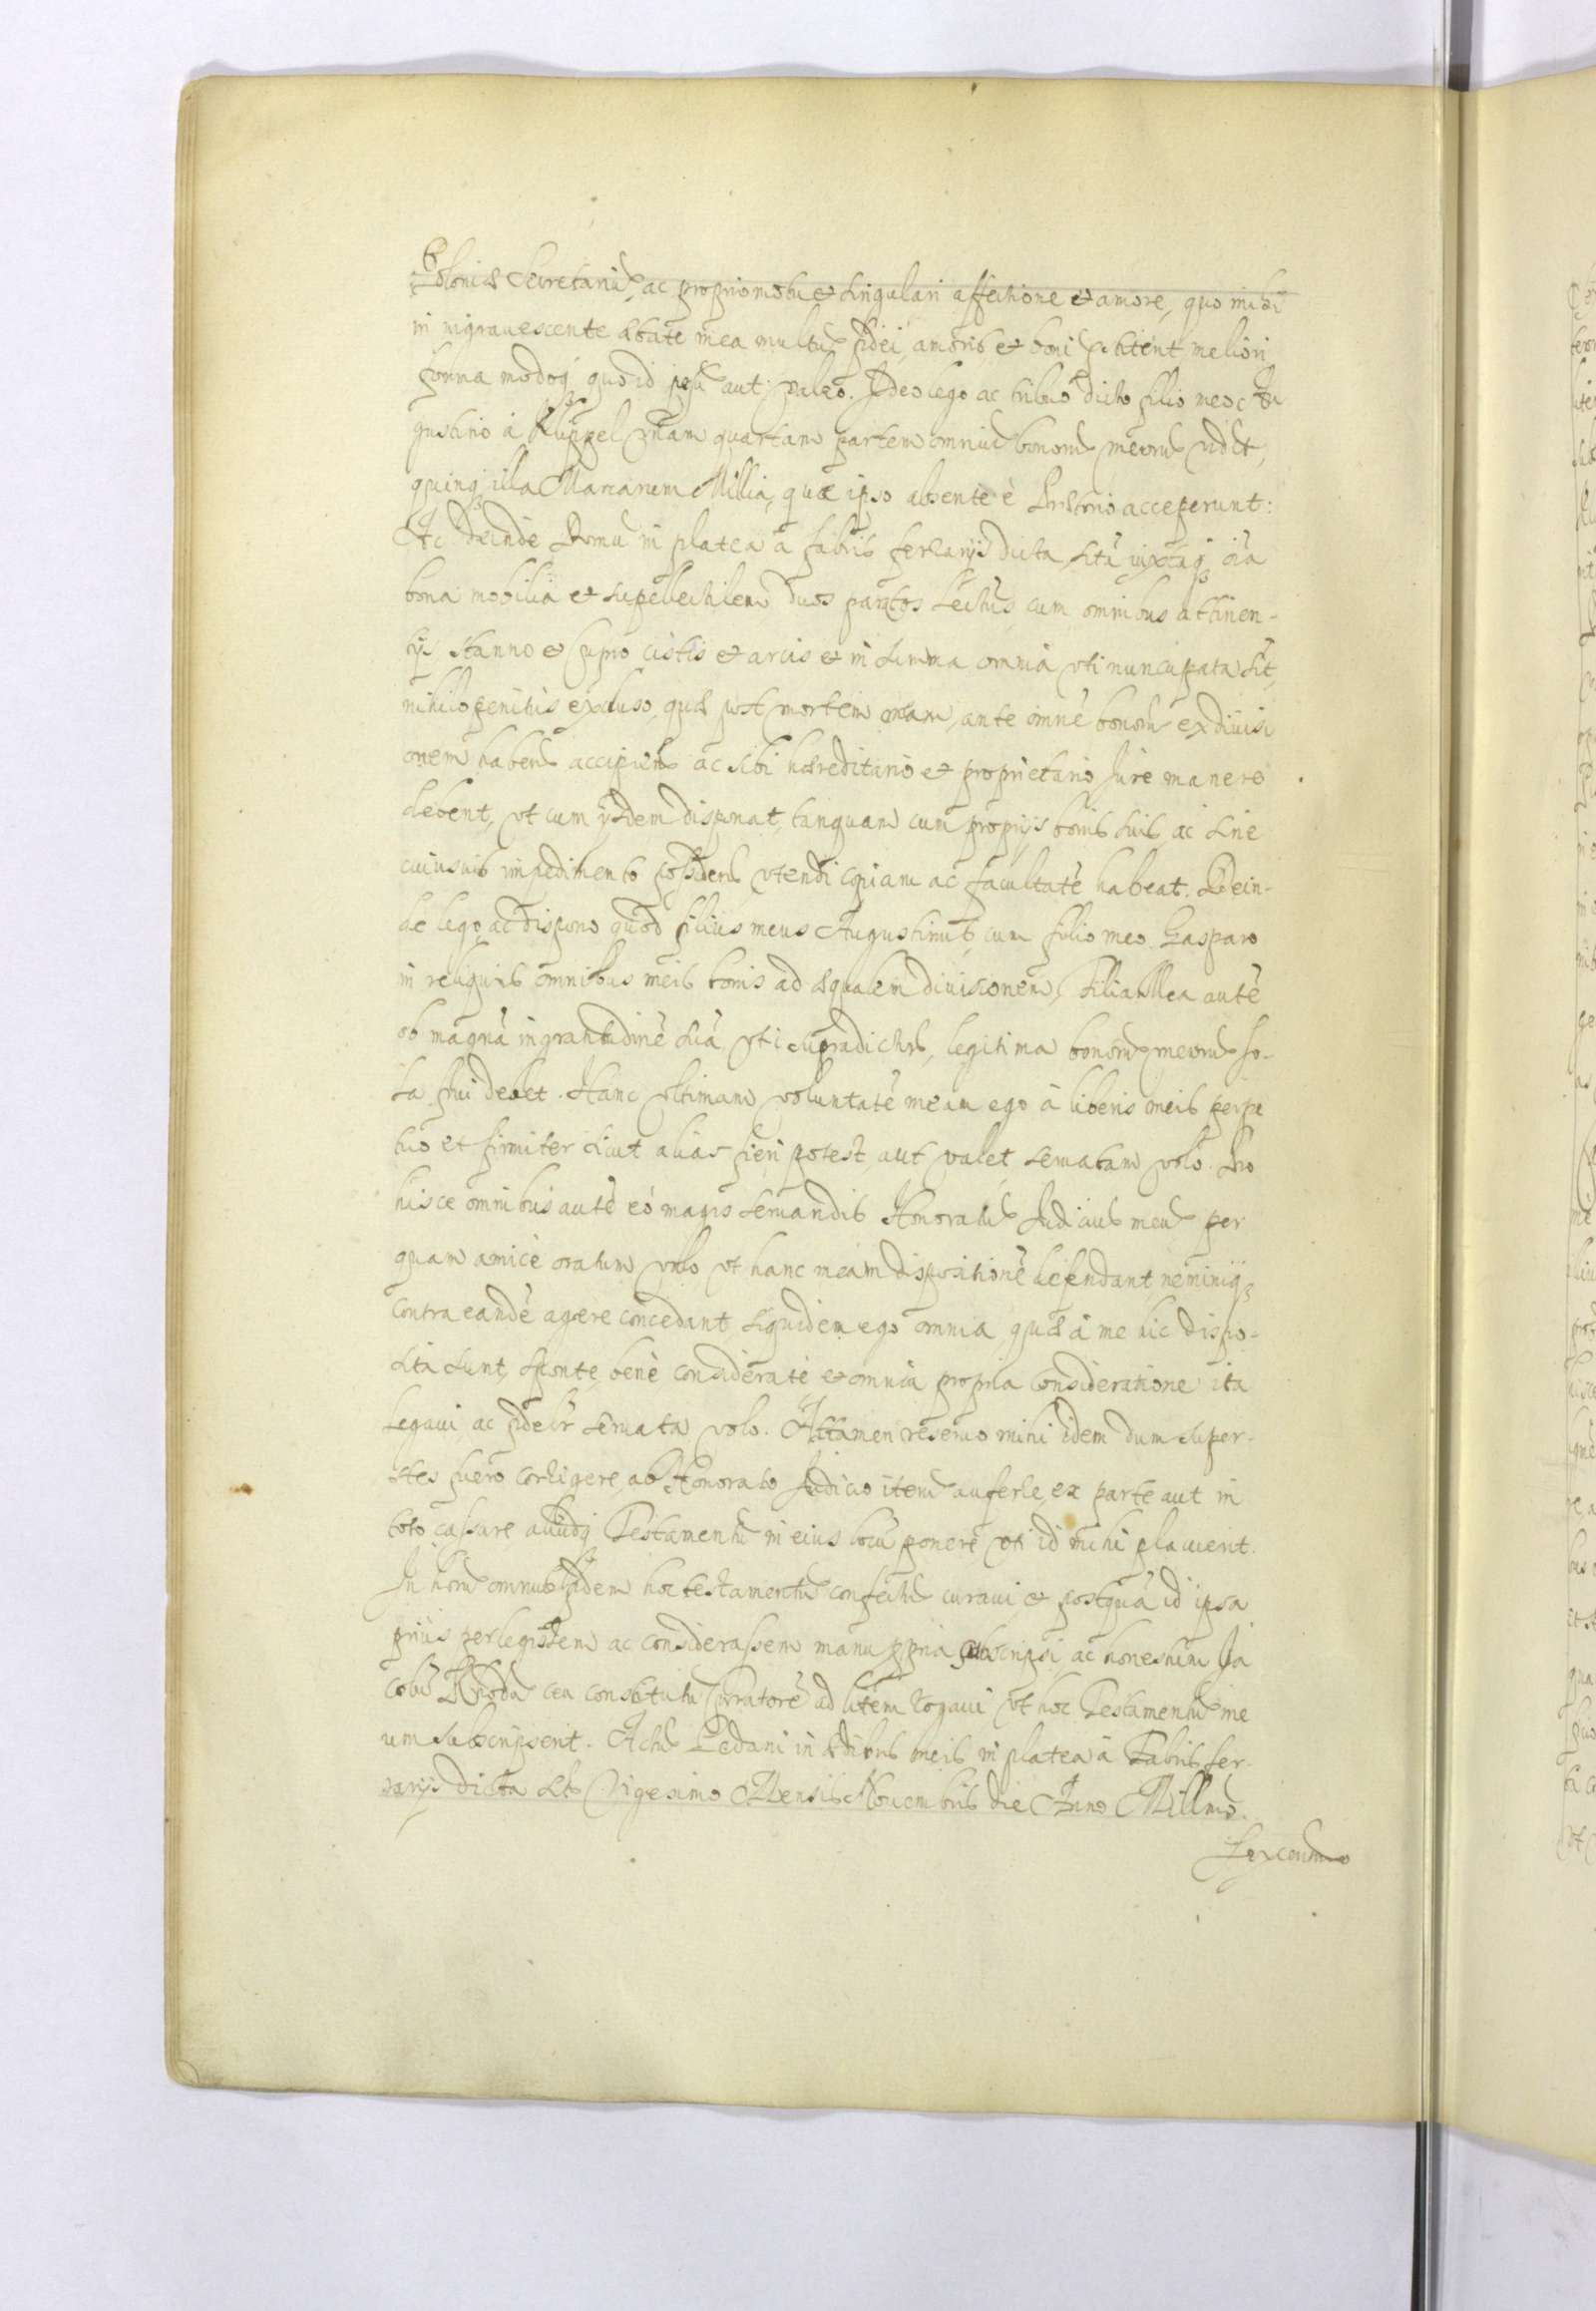 Poloniæ Secretariũ, ac proprio motu et singulari affectione et amore, quo mihi
in ingrauescente ætate mea multũ fidei, amoris et boni præstitent meliori
forma modoq̃ quo id posſũ aut valeo. Ideo lego ac tribuo dicto filio meo Au
gustino à Klüppel vnam quartam partem omniũ bonorũ meorũ vidlt,
quinq̃ illa Marcarum Millia, quæ ipso absente è acceperunt:
Ac deinde Domũ in platea à fabris ferrarijs dicta, sitã iuxtaq̃ oĩa
bona mobilia et supellectilem duos paratos lectus, cum omnibus attinen-
tijs Stanno et Cupro cistis et arcis et in summa omnia vti nuncupata sĩt,
nihilo penitùs excluso, quæ post mortem meam, ante omnẽ bonorũ exdiuisi
onem habend accipiend ac sibi hæreditario et proprietario Jure manere
debent, vt cum ijsdem disponat, tanquam cum proprijs bonis suis, ac sine
cuiusuis impedimento possidend vtendi copiam ac facultatẽ habeat. Dein-
de lego ac dispono quod filius meus Augustinus, cum filio meo Gasparo
in reliquis omnibus meis bonis ad æqualem diuisionem, Filia Mea autẽ
ob magnã ingratitudinẽ suã, vti supradictũ, legitima bonorũ meorũ so-
la frui debet. Hanc vltimam voluntatẽ meam ego à liberis meis perpe
tuo et firmiter sicut alias fieri potest aut valet seruatam volo. Pro
hisce omnibus autẽ eò magis seruandis Honoratũ Judiciũ meũ per
quam amicè oratum volo vt hanc meam dispositionẽ defendant neminiq̃
contra eandẽ agere concedant siquidem ego omnia quæ à me hic dispo-
sita sunt, sponte, benè consideratè et omnia propria consideratione ita
Legaui ac fidelr seruata volo. Attamen reseruo mihi idem dum super-
stes fuero corrigere, ab Honorato Judicio iterũ auferre, ex parte aut in
toto cassare aliudq̃ Testamentũ in eius locũ ponere vti id mihi placuerit.
In horũ omniũ fidem hoc testamentũ confectũ curaui, et postquã id ipsa
priùs perlegissem ac considerassem manu ppria subscripsi ac honestum Ja
cobũ Rhoda ceu constitutũ Curatorẽ ad litem rogaui vt hoc Testamentũ me
um subscripserit. Actũ Gedani in ædibus meis in platea à Fabris fer-
rarijs dicta Vigesimo Mensis Nouembris die Anno Millmo.
Sexcentmo